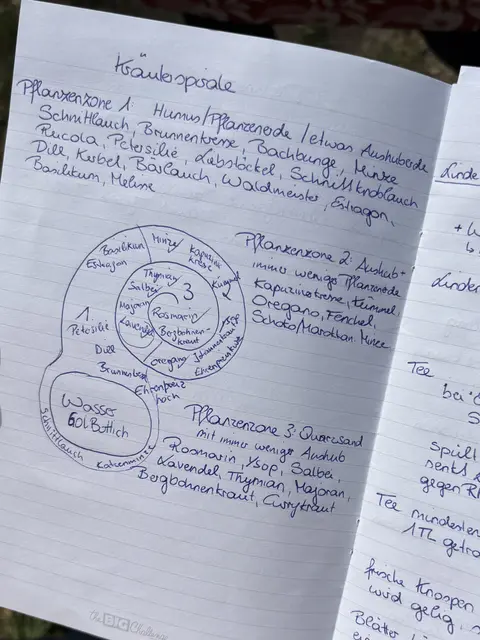 Kräuterspirale
Pflanzenzone 1: Humus/Pflanzenerde/etwas Aushuberde
Schnittlauch, Brunnenkresse, Bachbunge, Minze
Rucola, Petersilie, Liebstöckel, Schnittknoblauch
Dill, Kerbel, Bärlauch, Waldmeister, Estragon,
Basilikum, Melisse
Basilikum
Estragon
Minze
Kapuzinerkresse
Kümmel
Thymian
Salbei
3
Majoran
Rosmarin
Lavendel
Bergbohnenkraut
Oregano
Johanniskraut
Ysop
Ehrenpreis
1
Petersilie
Dill
Ehrenpreis
hoch
Wasser
60l Bottich
Schnittlauch
Katzenminze
Pflanzenzone 2: Aushub +
immer wenige Pflanzenerde
Kapuzinerkresse, Kümmel,
Oregano, Fenchel,
Schoko/Marokkan. Minze
Pflanzenzone 3: Quarzsand
mit immer wenige Aushub
Rosmarin, Ysop, Salbei,
Lavendel, Thymian, Majoran,
Bergbohnenkraut, Currykraut
the BIG Challenge
Linde
Linden
Tee
bei
spült
senkt
gegen
Tee mindesten
1TL getro
frische Knospen
wird gelig,
Blätter